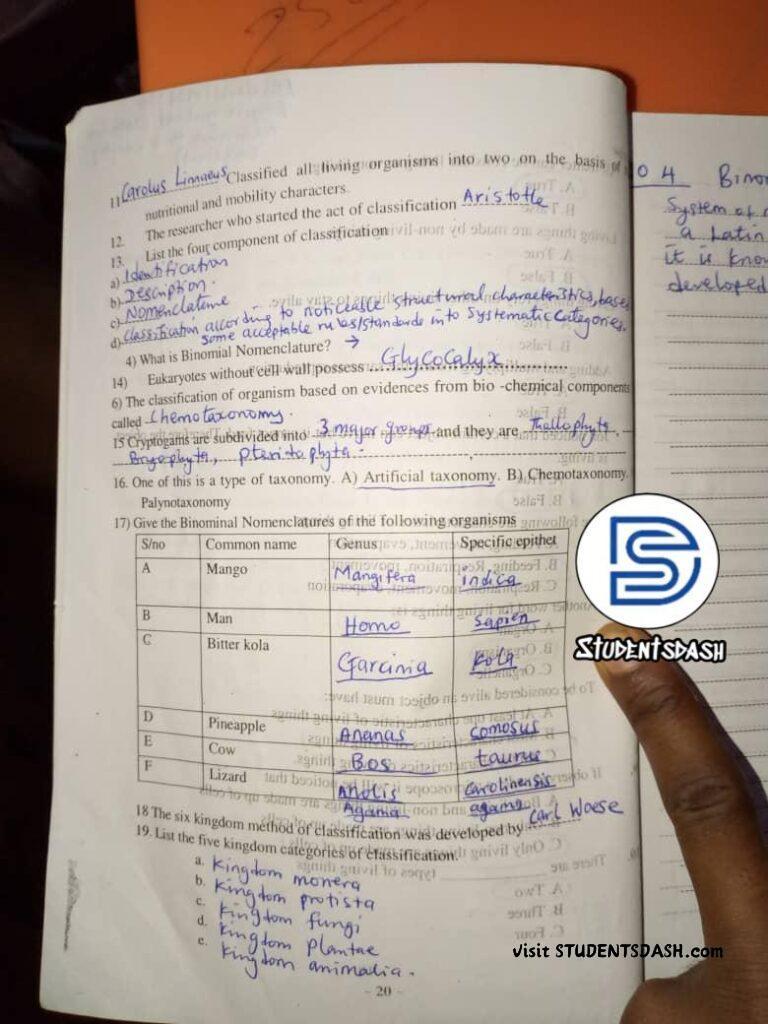 11. Carolus Linnaeus Classified all living organisms into two on the basis of
nutritional and mobility characters.
12. The researcher who started the act of classification Aristotle
13. List the four component of classification
a) Identification
b) Description.
c) Nomenclature
d) Classification according to noticeable structural characteristics, bases
some acceptable rules/standards into systematic categories.
4) What is Binomial Nomenclature? →
14) Eukaryotes without cell wall possess Glycocalyx
6) The classification of organism based on evidences from bio -chemical components
called Chemotaxonomy.
15 Cryptogams are subdivided into 3 major groups and they are Thallophyta,
Bryophyta, pteritophyta.
16. One of this is a type of taxonomy. A) Artificial taxonomy. B) Chemotaxonomy.
Palynotaxonomy
17) Give the Binominal Nomenclatures of the following organisms
S/no Common name Genus Specific epithet
A Mango Mangifera indica
B Man Homo sapien
C Bitter kola Garcinia kola
D Pineapple Ananas comosus
E Cow Bos taurus
F Lizard Anolis carolinensis
Agama agama
18 The six kingdom method of classification was developed by Carl Woese
19. List the five kingdom categories of classification.
a. kingdom monera
b. kingdom protista
c. kingdom fungi
d. kingdom plantae
e. kingdom animalia.
- 20 -
04 Binom
System of
a Latin
it is know
developed
STUDENTSDASH
visit STUDENTSDASH.com